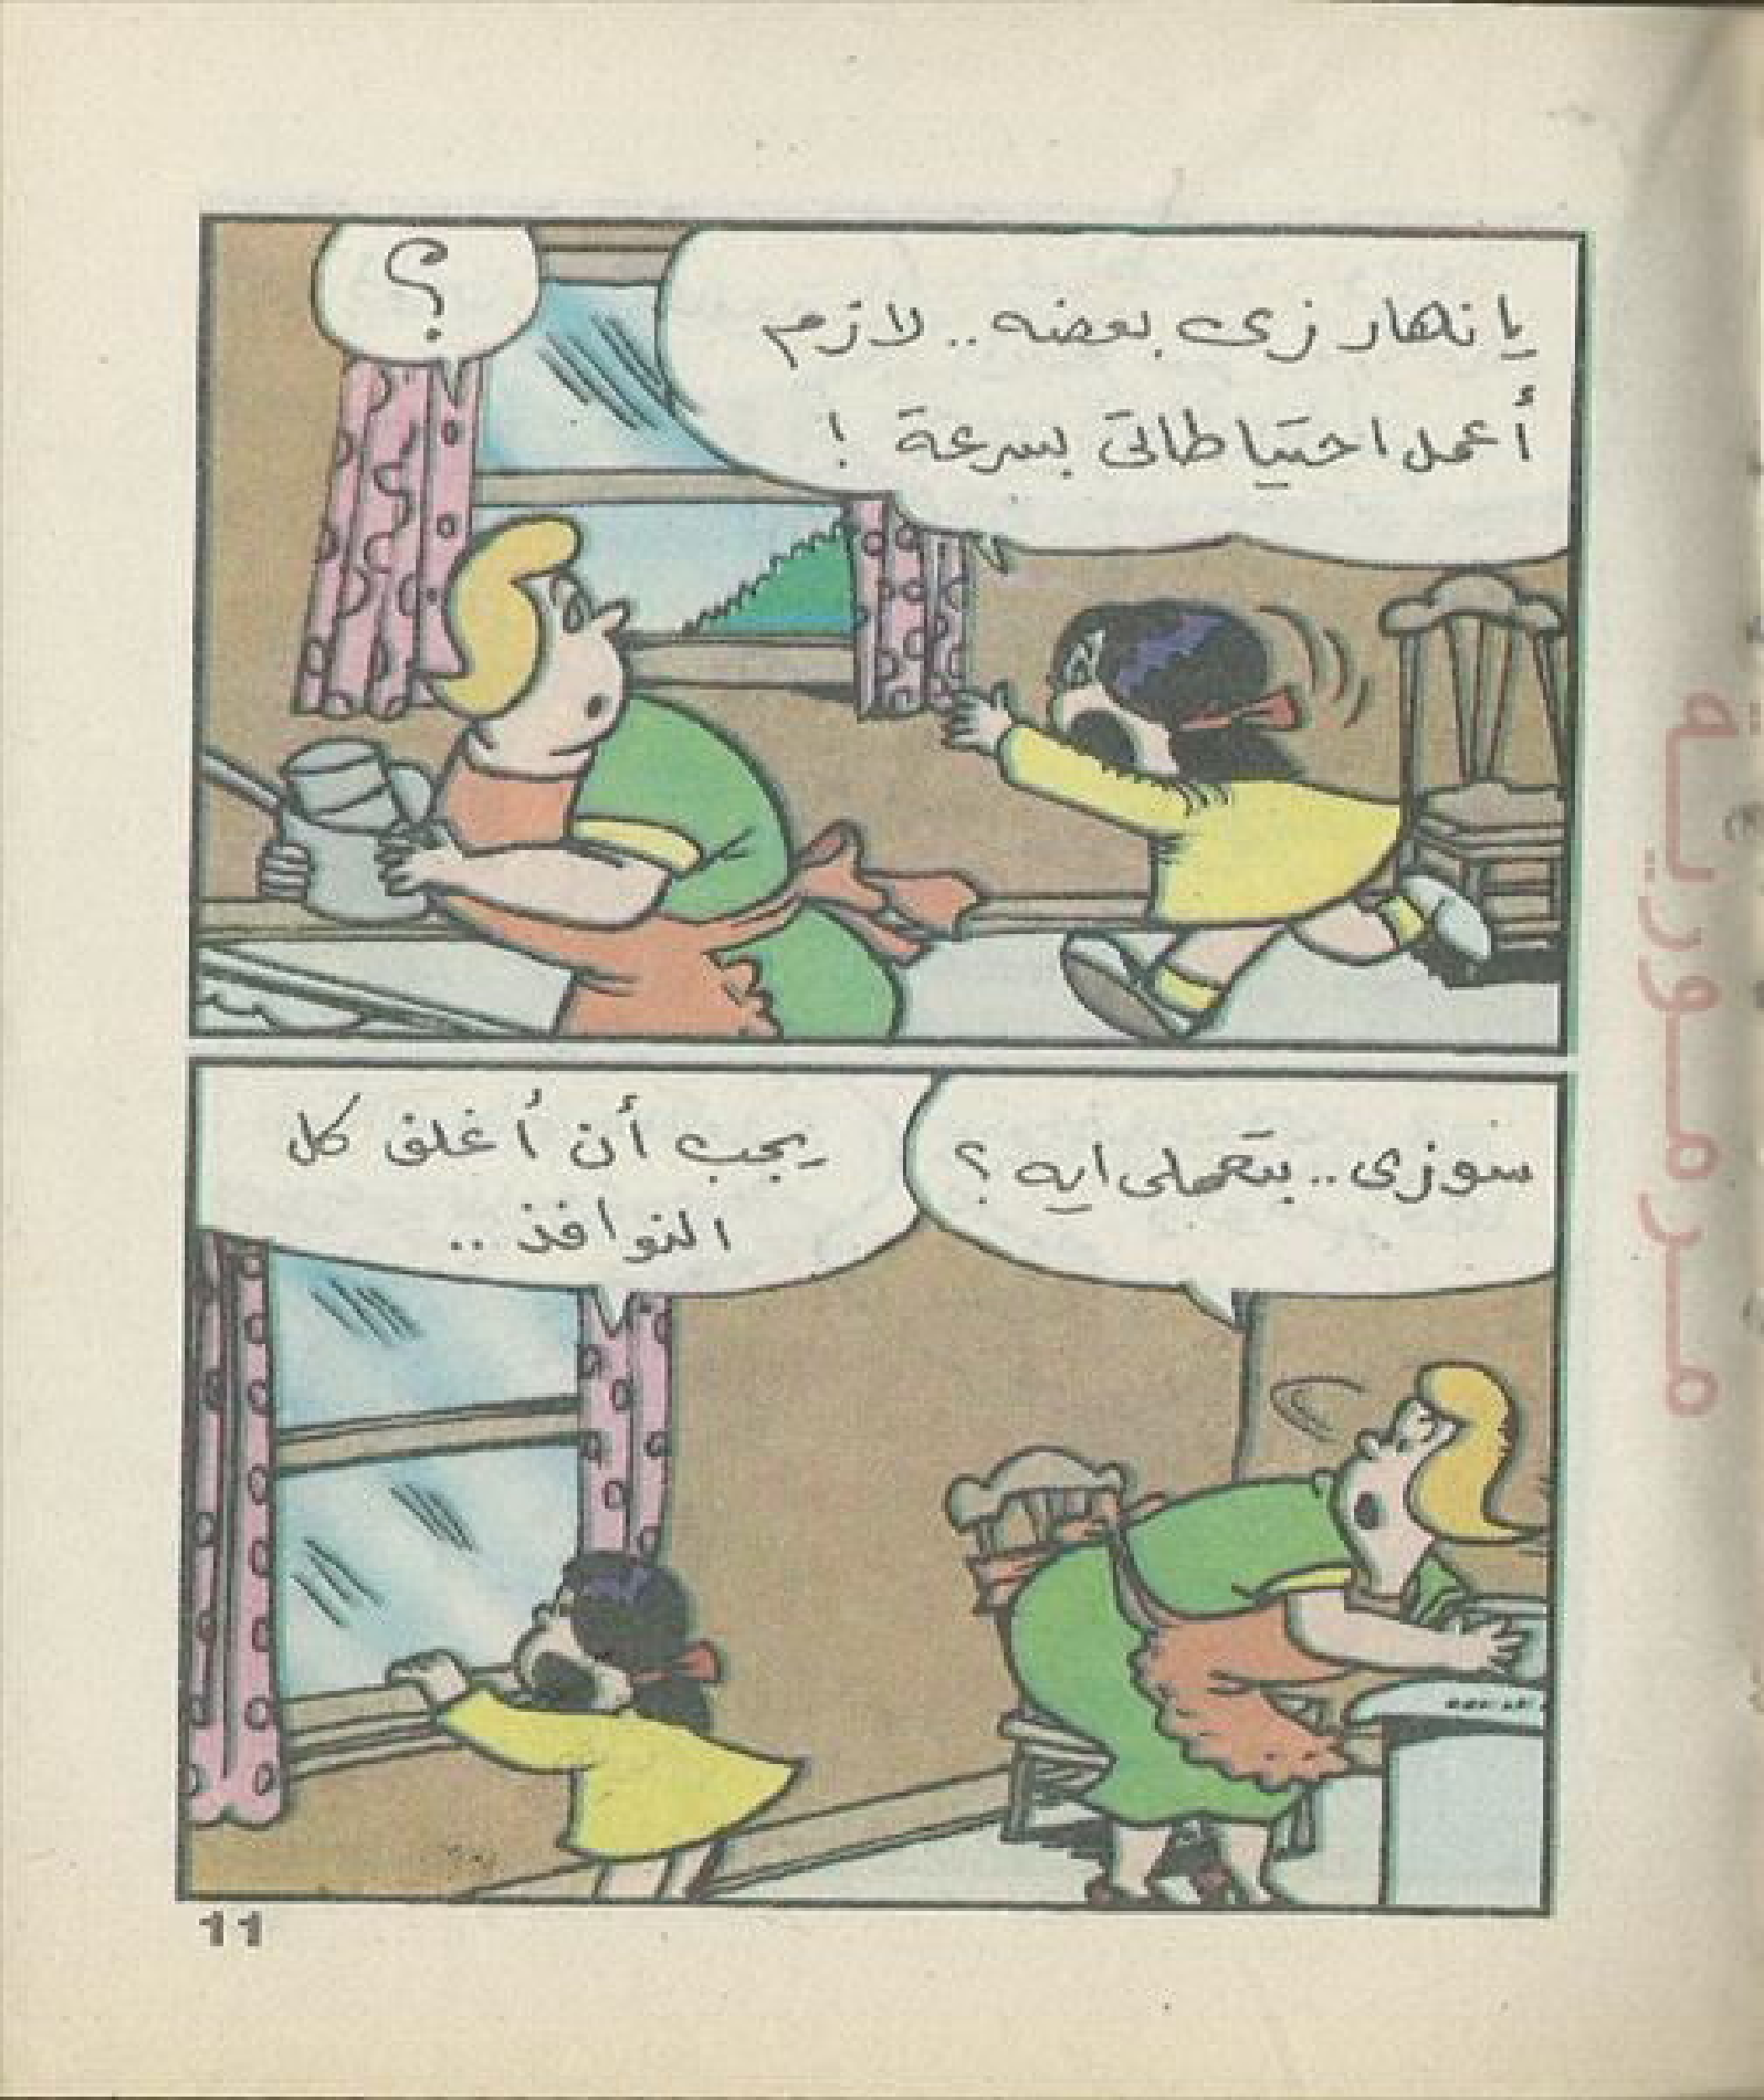 يا نهار زى بعضه.. لازم
أعمل احتياطاتى بسرعة !
؟
سوزى.. بتعملى ايه ؟
يجب أن أغلق كل
النوافذ ..
11
مرموريه